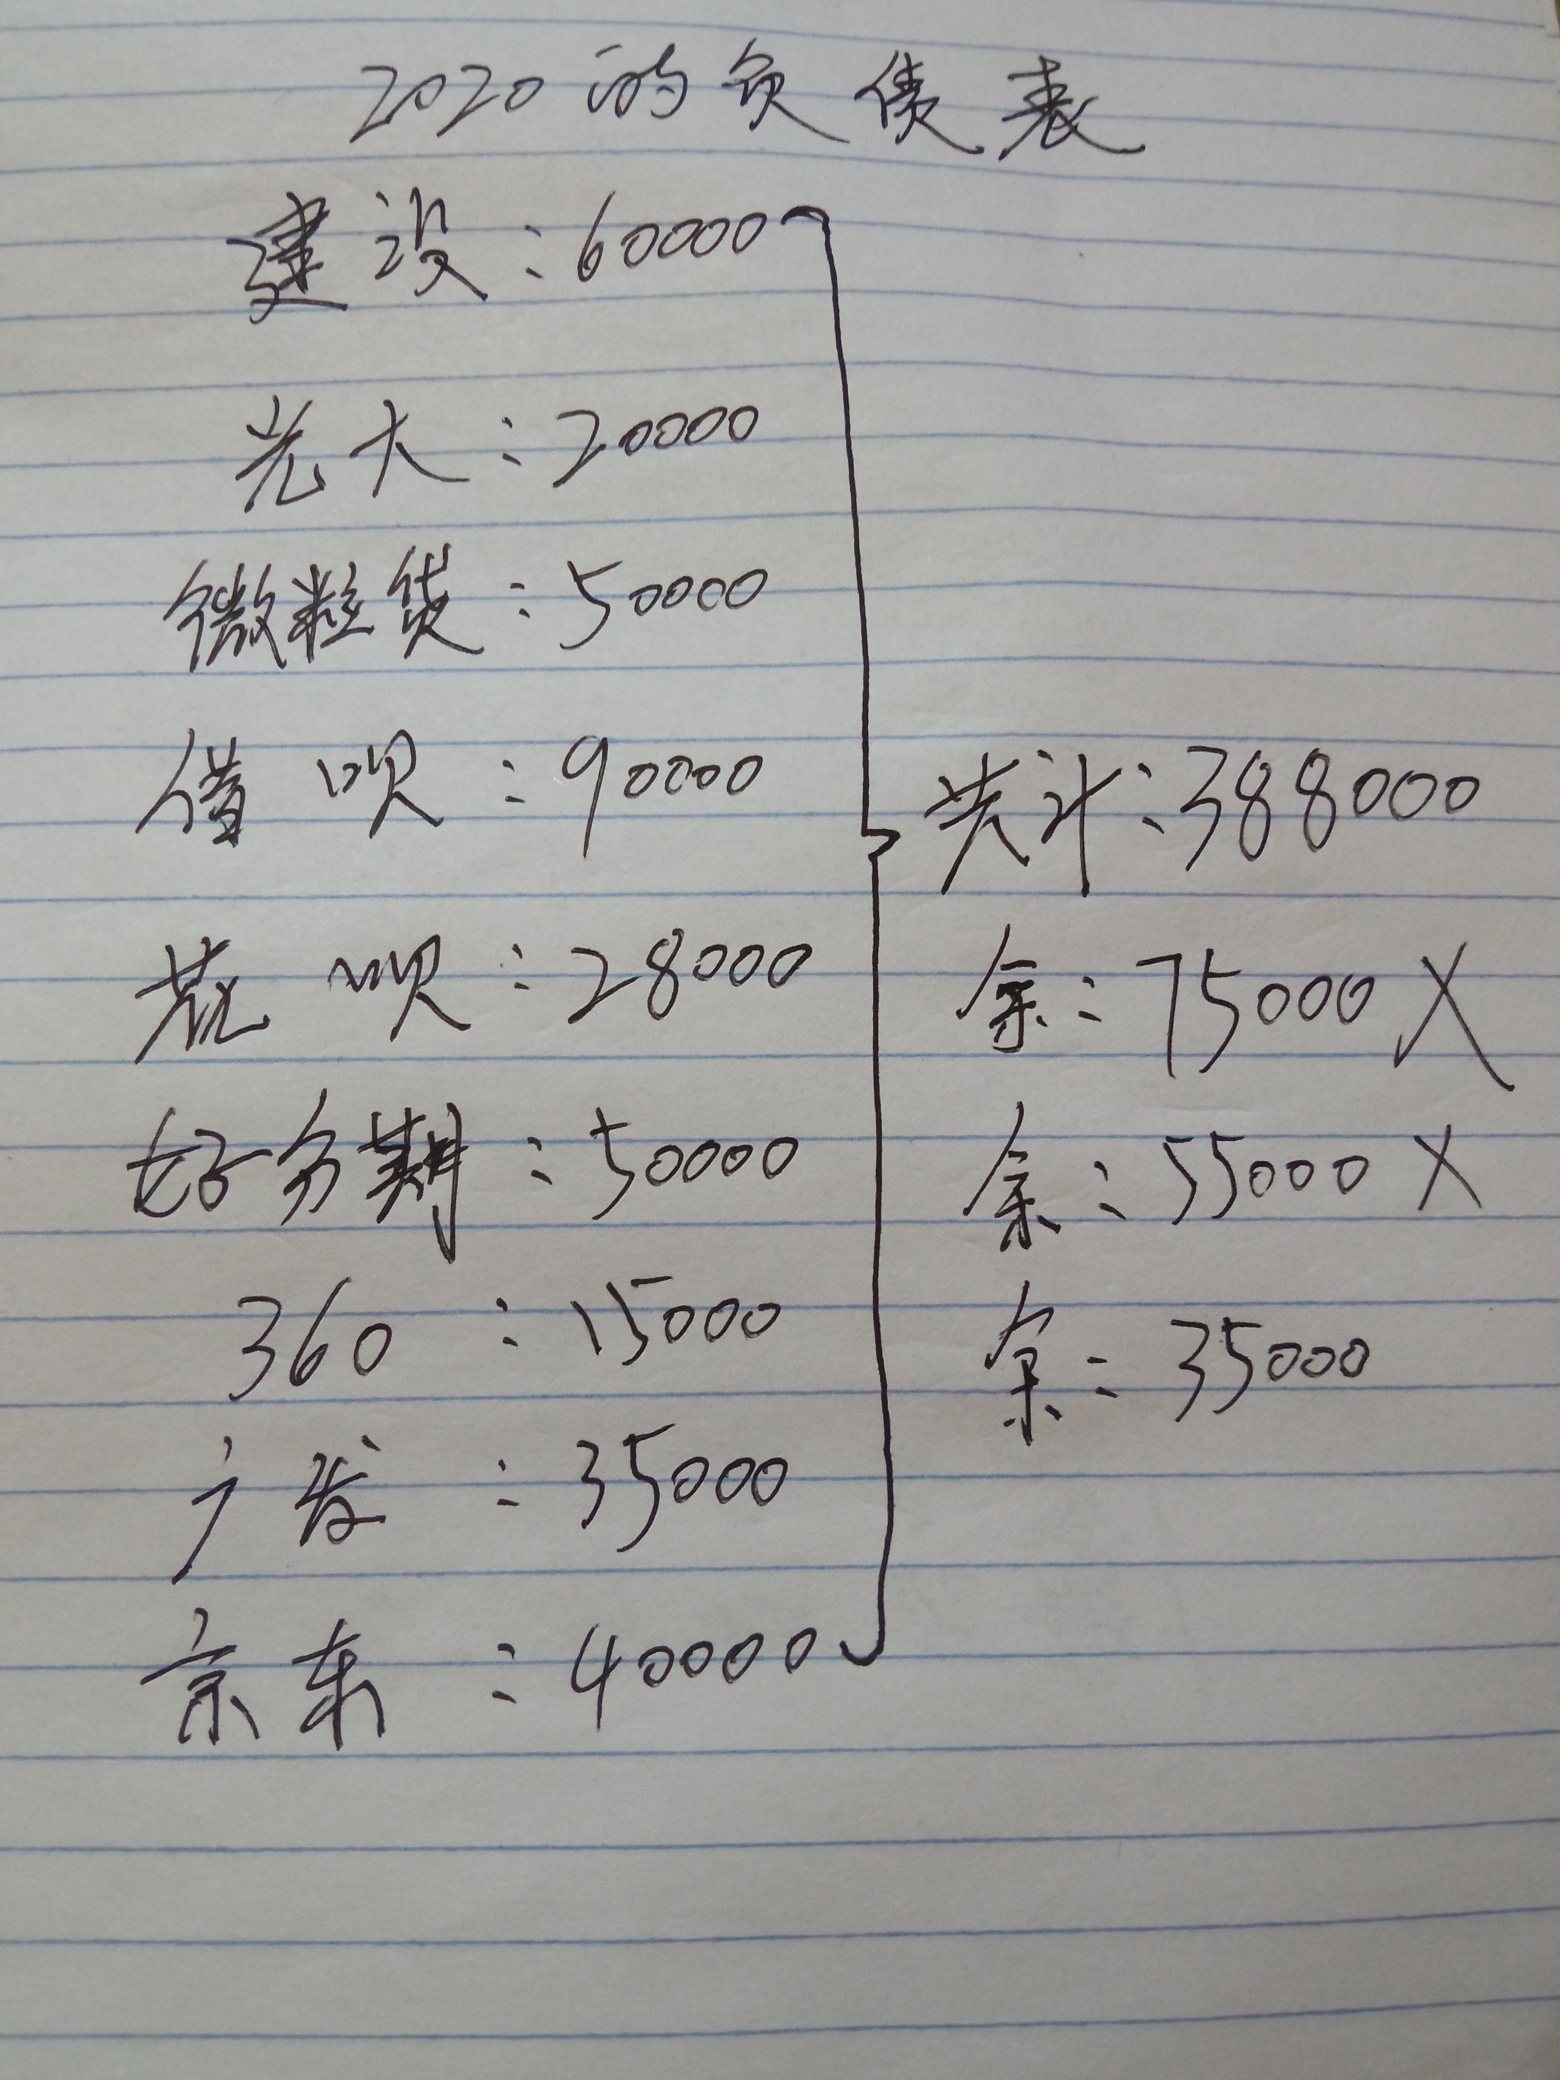 2020的负债表
建设：60000
光大：20000
微粒贷：50000
借呗：90000
花呗：28000
好分期：50000
360：15000
广发：35000
京东：40000
共计：388000
余：75000 X
余：55000 X
余：35000